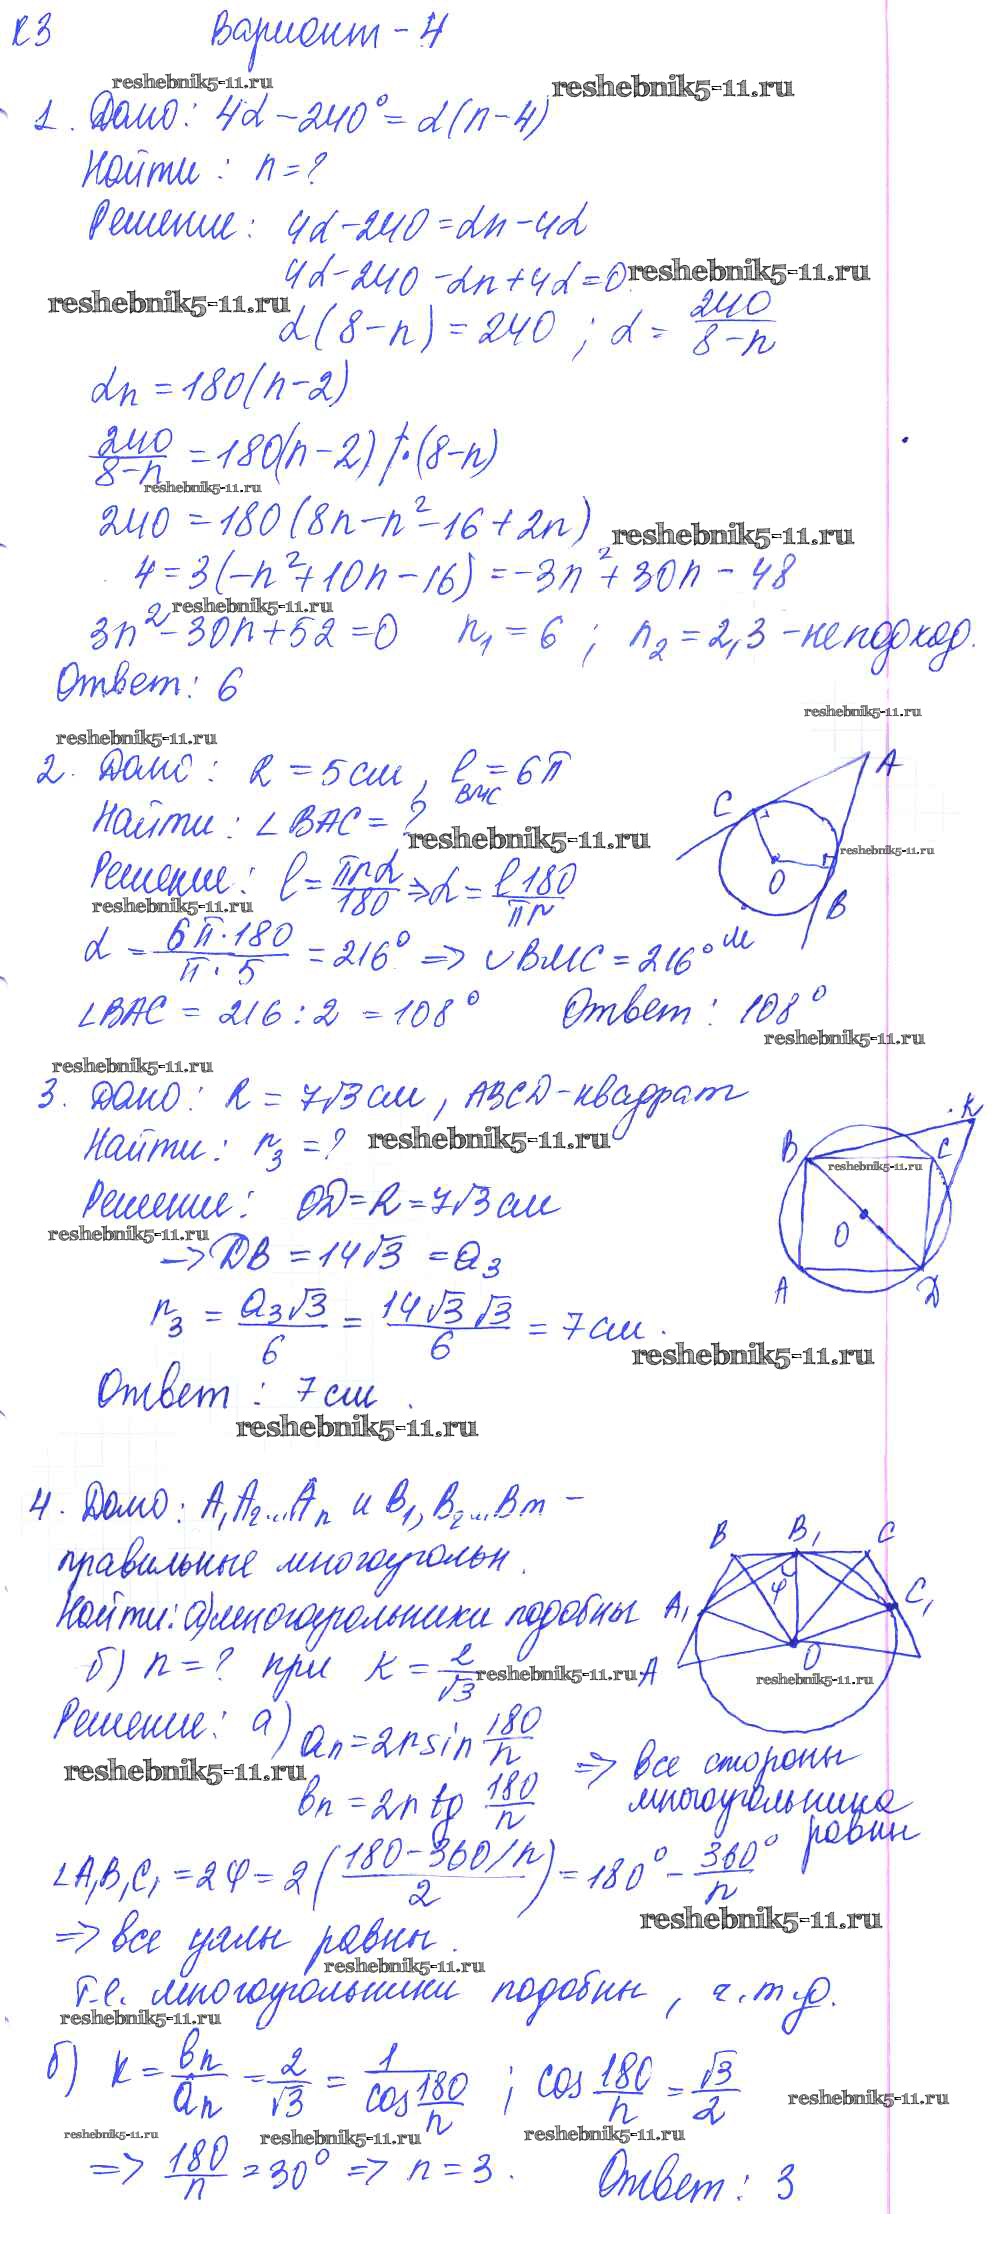 К3 Вариант - 4
reshebnik5-11.ru reshebnik5-11.ru
1. Дано: 4α - 240° = α(n-4)
Найти: n = ?
Решение: 4α - 240 = αn - 4α
4α - 240 - αn + 4α = 0 reshebnik5-11.ru
reshebnik5-11.ru
α(8-n) = 240 ; α = 240/(8-n)
αn = 180(n-2)
240/(8-n) = 180(n-2) | · (8-n)
reshebnik5-11.ru
240 = 180(8n - n² - 16 + 2n) reshebnik5-11.ru
4 = 3(-n² + 10n - 16) = -3n² + 30n - 48
reshebnik5-11.ru
3n² - 30n + 52 = 0 n₁ = 6 ; n₂ = 2,3 - не подход.
Ответ: 6
reshebnik5-11.ru
reshebnik5-11.ru
2. Дано: R = 5 см, l BMC = 6π
Найти: ∠BAC = ?
reshebnik5-11.ru
Решение: l = πrα/180 => α = l180/πr
reshebnik5-11.ru
α = 6π·180/π·5 = 216° => ∪BMC = 216°
∠BAC = 216 : 2 = 108° Ответ: 108°
A
C
reshebnik5-11.ru
O
B
M
reshebnik5-11.ru
reshebnik5-11.ru
3. Дано: R = 7√3 см, ABCD - квадрат
Найти: r₃ = ? reshebnik5-11.ru
Решение: OD = R = 7√3 см
reshebnik5-11.ru
-> DB = 14√3 = a₃
r₃ = a₃√3/6 = 14√3√3/6 = 7 см.
reshebnik5-11.ru
Ответ: 7 см.
reshebnik5-11.ru
K
B C
reshebnik5-11.ru
O
A D
4. Дано: A₁A₂...Aₙ и B₁, B₂...Bm -
правильные многоугольн.
Найти: а) многоугольники подобны
б) n = ? при K = 2/√3 reshebnik5-11.ru
Решение: а) aₙ = 2r sin 180/n
reshebnik5-11.ru
bₙ = 2r tg 180/n
=> все стороны
многоугольника
равны
B B₁ C
A₁ φ C₁
A O
reshebnik5-11.ru
∠A₁B₁C₁ = 2φ = 2((180 - 360/n)/2) = 180° - 360°/n
reshebnik5-11.ru
=> все углы равны.
reshebnik5-11.ru
т.е. многоугольники подобны, ч.т.д.
reshebnik5-11.ru
б) K = bₙ/aₙ = 2/√3 = 1/cos 180/n ; cos 180/n = √3/2
reshebnik5-11.ru
reshebnik5-11.ru reshebnik5-11.ru reshebnik5-11.ru
=> 180/n = 30° => n = 3. Ответ: 3